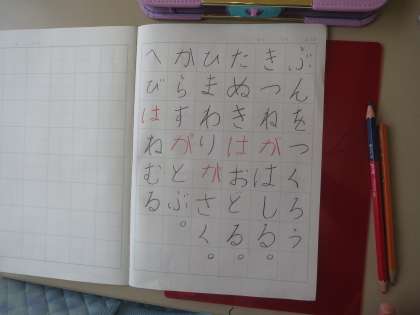 ぶんをつくろう
きつねがはしる。
たぬきはおどる。
ひまわりがさく。
からすがとぶ。
へびはねむる